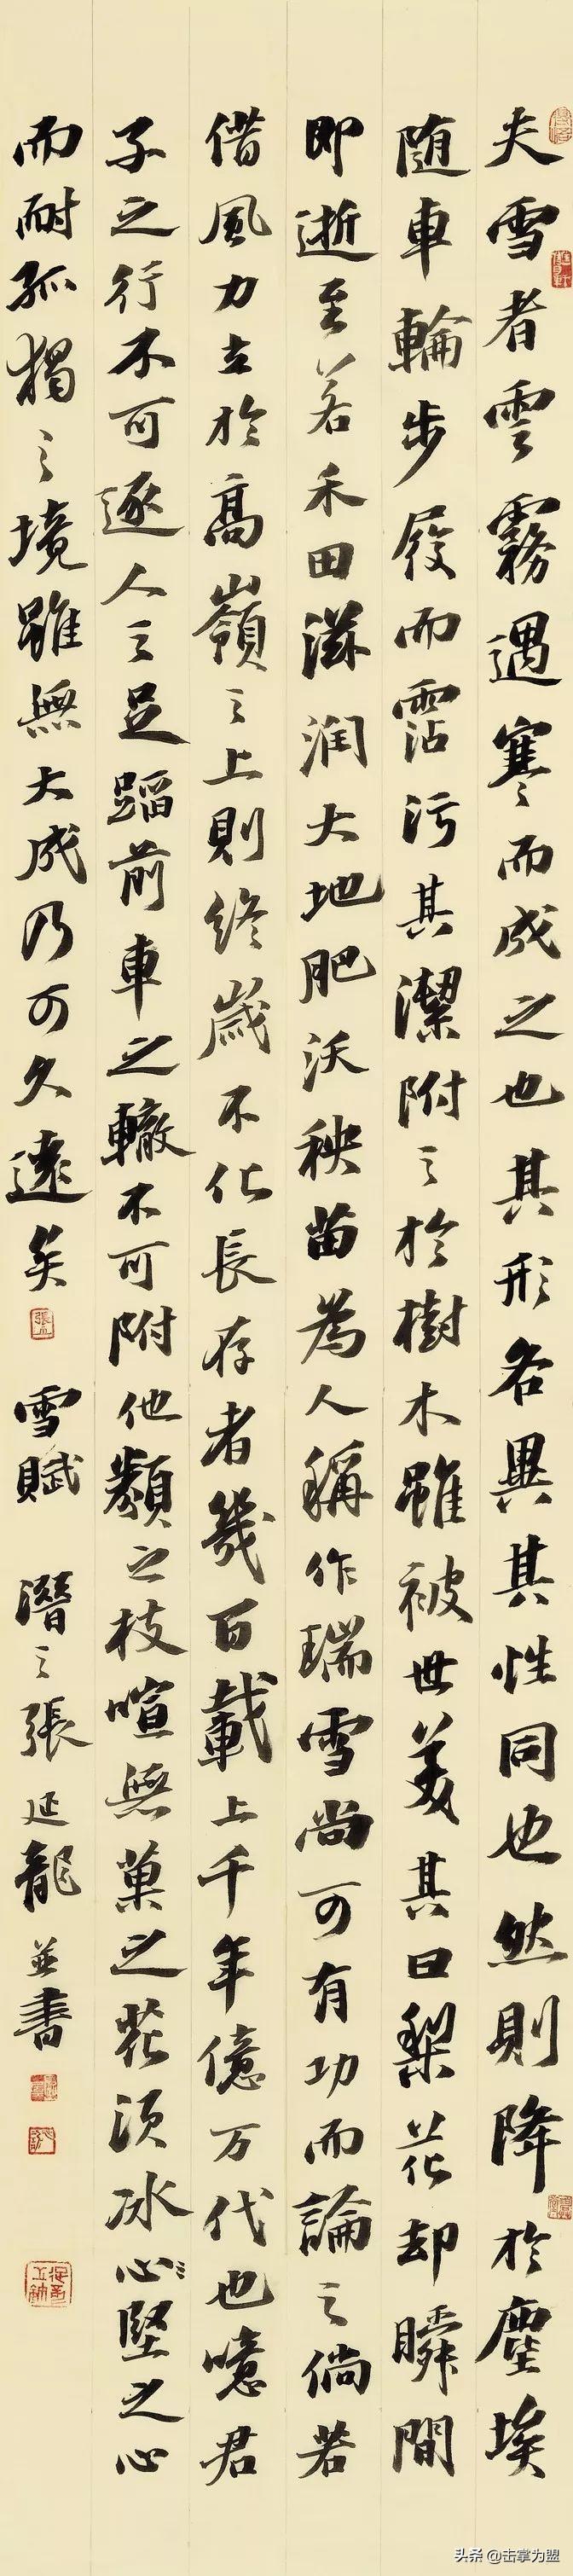 夫雪者雲霧遇寒而成之也其形各異其性同也然則降於塵埃
随車輪步屐而霑污其潔附之於樹木雖被世美其曰梨花却瞬間
即逝至若禾田滋润大地肥沃秧苗為人稱作瑞雪尚可有功而論之倘若
借風力立於高嶺之上則終歲不化長存者幾百載上千年億万代也噫君
子之行不可逐人之足蹈前車之轍不可附他類之枝喧無菓之花须冰心堅之心
而耐孤獨之境雖無大成乃可久遠矣
雪賦
潛之張延龍並書
头条 @击掌为盟